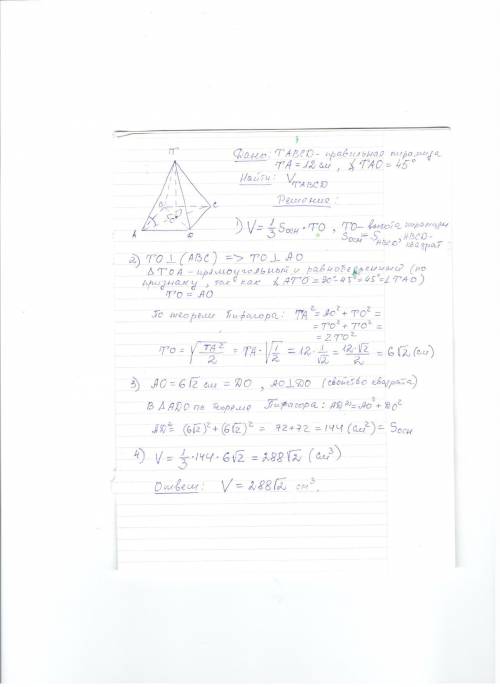 T
A
B
C
D
O
Дано: TABCD - правильная пирамида
TA = 12 см, ∡TAO = 45°
Найти: V_TABCD
Решение:
1) V = 1/3 Sосн · TO, TO - высота пирамиды
Sосн = S_ABCD, ABCD - квадрат.
2) TO ⊥ (ABC) => TO ⊥ AO
△TOA - прямоугольный и равнобедренный (по
признаку, так как ∡ATO = 90° - 45° = 45° = ∡TAO)
TO = AO
По теореме Пифагора: TA² = AO² + TO² =
= TO² + TO² =
= 2TO²
TO = √(TA²/2) = TA · √(1/2) = 12 · 1/√2 = 12·√2/2 = 6√2 (см)
3) AO = 6√2 см = DO, AO ⊥ DO (свойство квадрата)
В △ADO по теореме Пифагора: AD² = AO² + DO²
AD² = (6√2)² + (6√2)² = 72 + 72 = 144 (см²) = Sосн
4) V = 1/3 · 144 · 6√2 = 288√2 (см³)
Ответ: V = 288√2 см³.